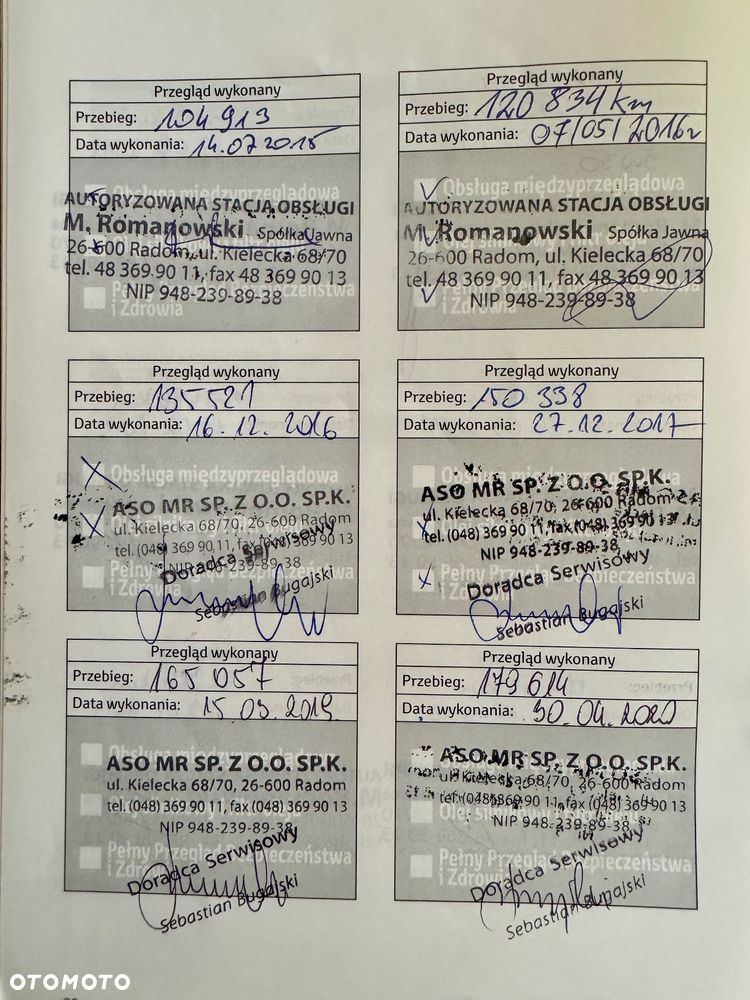 Przegląd wykonany
Przebieg: 104 913
Data wykonania: 14.07.2015
Obsługa międzyprzeglądowa
AUTORYZOWANA STACJA OBSŁUGI
M. Romanowski Spółka Jawna
26-600 Radom, ul. Kielecka 68/70
tel. 48 369 90 11, fax 48 369 90 13
NIP 948-239-89-38
i Zdrowia
Przegląd wykonany
Przebieg: 120 834 km
Data wykonania: 07/05/2016r
Obsługa międzyprzeglądowa
AUTORYZOWANA STACJA OBSŁUGI
M. Romanowski Spółka Jawna
26-600 Radom, ul. Kielecka 68/70
tel. 48 369 90 11, fax 48 369 90 13
NIP 948-239-89-38
i Zdrowia
Przegląd wykonany
Przebieg: 135521
Data wykonania: 16.12.2016
Obsługa międzyprzeglądowa
ASO MR SP. Z O.O. SP.K.
ul. Kielecka 68/70, 26-600 Radom
tel. (048) 369 90 11, fax (048) 369 90 13
NIP 948-239-89-38
Doradca Serwisowy
Pełny Przegląd Bezpieczeństwa
i Zdrowia
Sebastian Bugajski
Przegląd wykonany
Przebieg: 150 338
Data wykonania: 27.12.2017
Obsługa międzyprzeglądowa
ASO MR SP. Z O.O. SP.K.
ul. Kielecka 68/70, 26-600 Radom
tel. (048) 369 90 11, fax (048) 369 90 13
NIP 948-239-89-38
Doradca Serwisowy
Pełny Przegląd Bezpieczeństwa
i Zdrowia
Sebastian Bugajski
Przegląd wykonany
Przebieg: 165 057
Data wykonania: 15.03.2019
Obsługa międzyprzeglądowa
ASO MR SP. Z O.O. SP.K.
ul. Kielecka 68/70, 26-600 Radom
tel. (048) 369 90 11, fax (048) 369 90 13
NIP 948-239-89-38
Doradca Serwisowy
Pełny Przegląd Bezpieczeństwa
i Zdrowia
Sebastian Bugajski
Przegląd wykonany
Przebieg: 179 614
Data wykonania: 30.04.2020
ASO MR SP. Z O.O. SP.K.
ul. Kielecka 68/70, 26-600 Radom
tel. (048) 369 90 11, fax (048) 369 90 13
Olej silnikowy
NIP 948-239-89-38
Doradca Serwisowy
Pełny Przegląd Bezpieczeństwa
i Zdrowia
Sebastian Bugajski
OTOMOTO